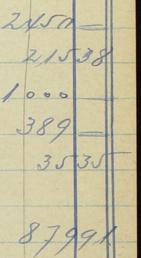 2450 —
21538
1000 —
389 —
3535
87991